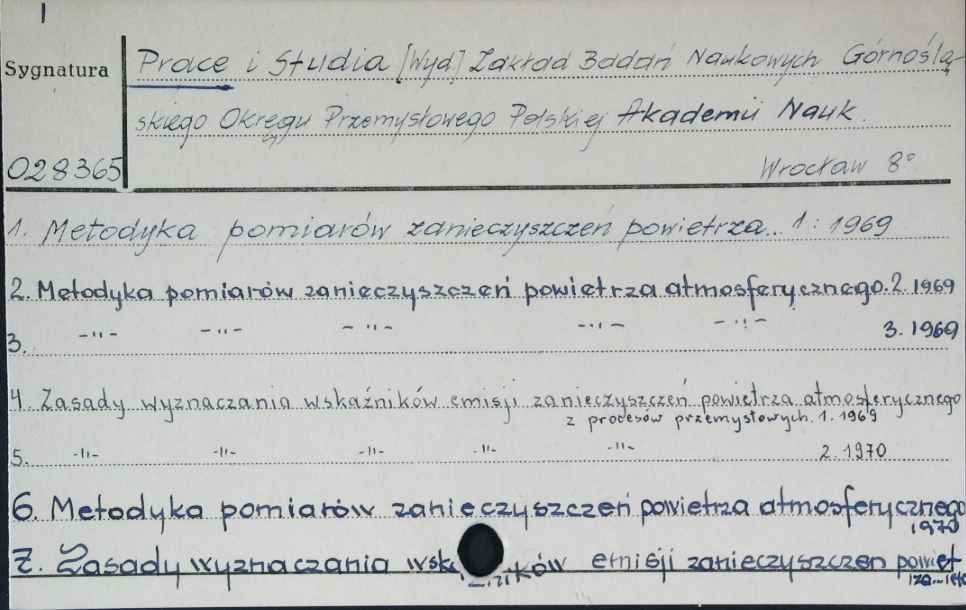 1
Sygnatura
Prace i Studia [Wyd] Zakład Badań Naukowych Górnoślą-
skiego Okręgu Przemysłowego Polskiej Akademii Nauk.
028365
Wrocław 8°
1. Metodyka pomiarów zanieczyszczeń powietrza.. 1: 1969
2. Metodyka pomiarów zanieczyszczeń powietrza atmosferycznego. 2 1969
3. -"- -"- -"- -"- -"- 3. 1969
4 Zasady wyznaczania wskaźników emisji zanieczyszczeń powietrza atmosferycznego
z procesów przemysłowych. 1. 1969
5. -"- -"- -"- -"- -"- 2. 1970
6. Metodyka pomiarów zanieczyszczeń powietrza atmosferycznego
1970
7. Zasady wyznaczania emisji zanieczyszczen powiet-